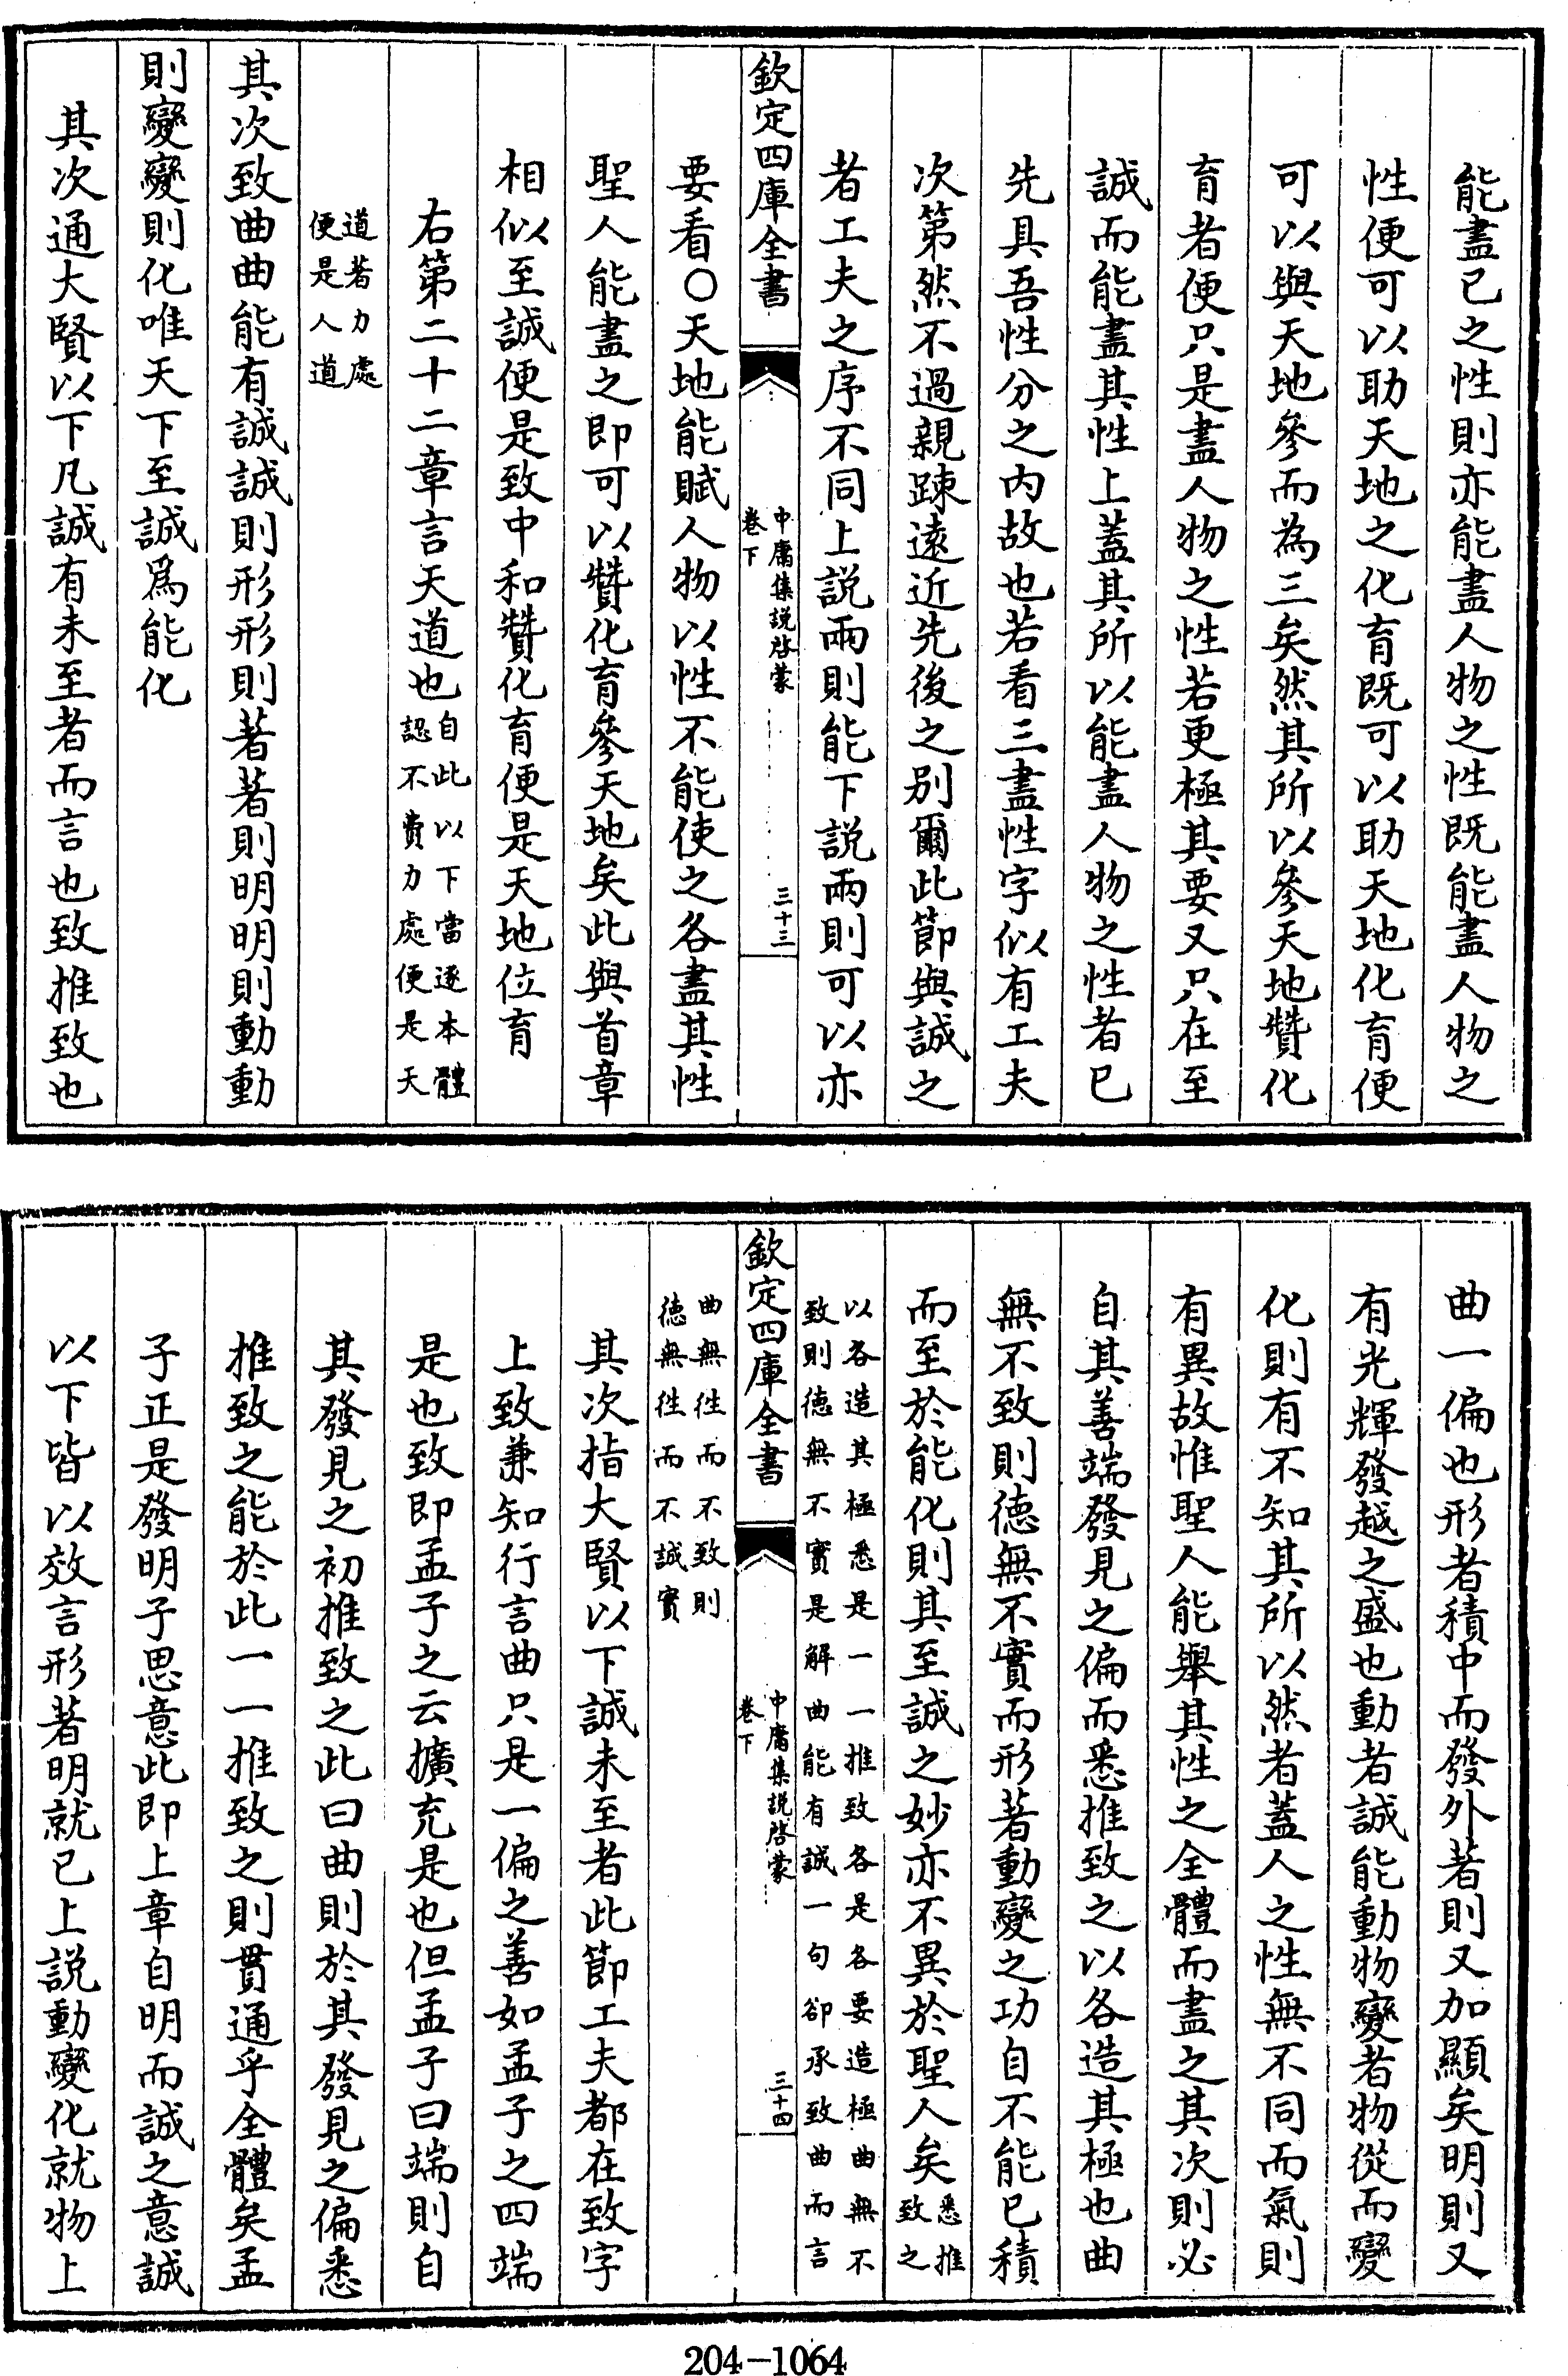 能盡己之性則亦能盡人物之性既能盡人物之
性便可以助天地之化育既可以助天地化育便
可以與天地參而為三矣然其所以參天地贊化
育者便只是盡人物之性若更極其要又只在至
誠而能盡其性上蓋其所以能盡人物之性者已
先具吾性分之内故也若看三盡性字似有工夫
次第然不過親踈遠近先後之别爾此節與誠之
者工夫之序不同上説兩則能下説兩則可以亦
欽定四庫全書
中庸集說啓蒙
卷下
三十三
要看○天地能賦人物以性不能使之各盡其性
聖人能盡之即可以贊化育參天地矣此與首章
相似至誠便是致中和贊化育便是天地位育
右第二十二章言天道也
自此以下當逐本體
認不費力處便是天
道著力處
便是人道
其次致曲曲能有誠誠則形形則著著則明明則動動
則變變則化唯天下至誠爲能化
其次通大賢以下凡誠有未至者而言也致推致也
曲一偏也形者積中而發外著則又加顯矣明則又
有光輝發越之盛也動者誠能動物變者物從而變
化則有不知其所以然者蓋人之性無不同而氣則
有異故惟聖人能舉其性之全體而盡之其次則必
自其善端發見之偏而悉推致之以各造其極也曲
無不致則德無不實而形著動變之功自不能已積
而至於能化則其至誠之妙亦不異於聖人矣
悉推
致之
以各造其極悉是一一推致各是各要造極曲無不
致則德無不實是解曲能有誠一句卻承致曲而言
欽定四庫全書
中庸集說啓蒙
卷下
三十四
曲無徃而不致則
德無徃而不誠實
其次指大賢以下誠未至者此節工夫都在致字
上致兼知行言曲只是一偏之善如孟子之四端
是也致即孟子之云擴充是也但孟子曰端則自
其發見之初推致之此曰曲則於其發見之偏悉
推致之能於此一一推致之則貫通乎全體矣孟
子正是發明子思意此即上章自明而誠之意誠
以下皆以效言形著明就己上説動變化就物上
204-1064